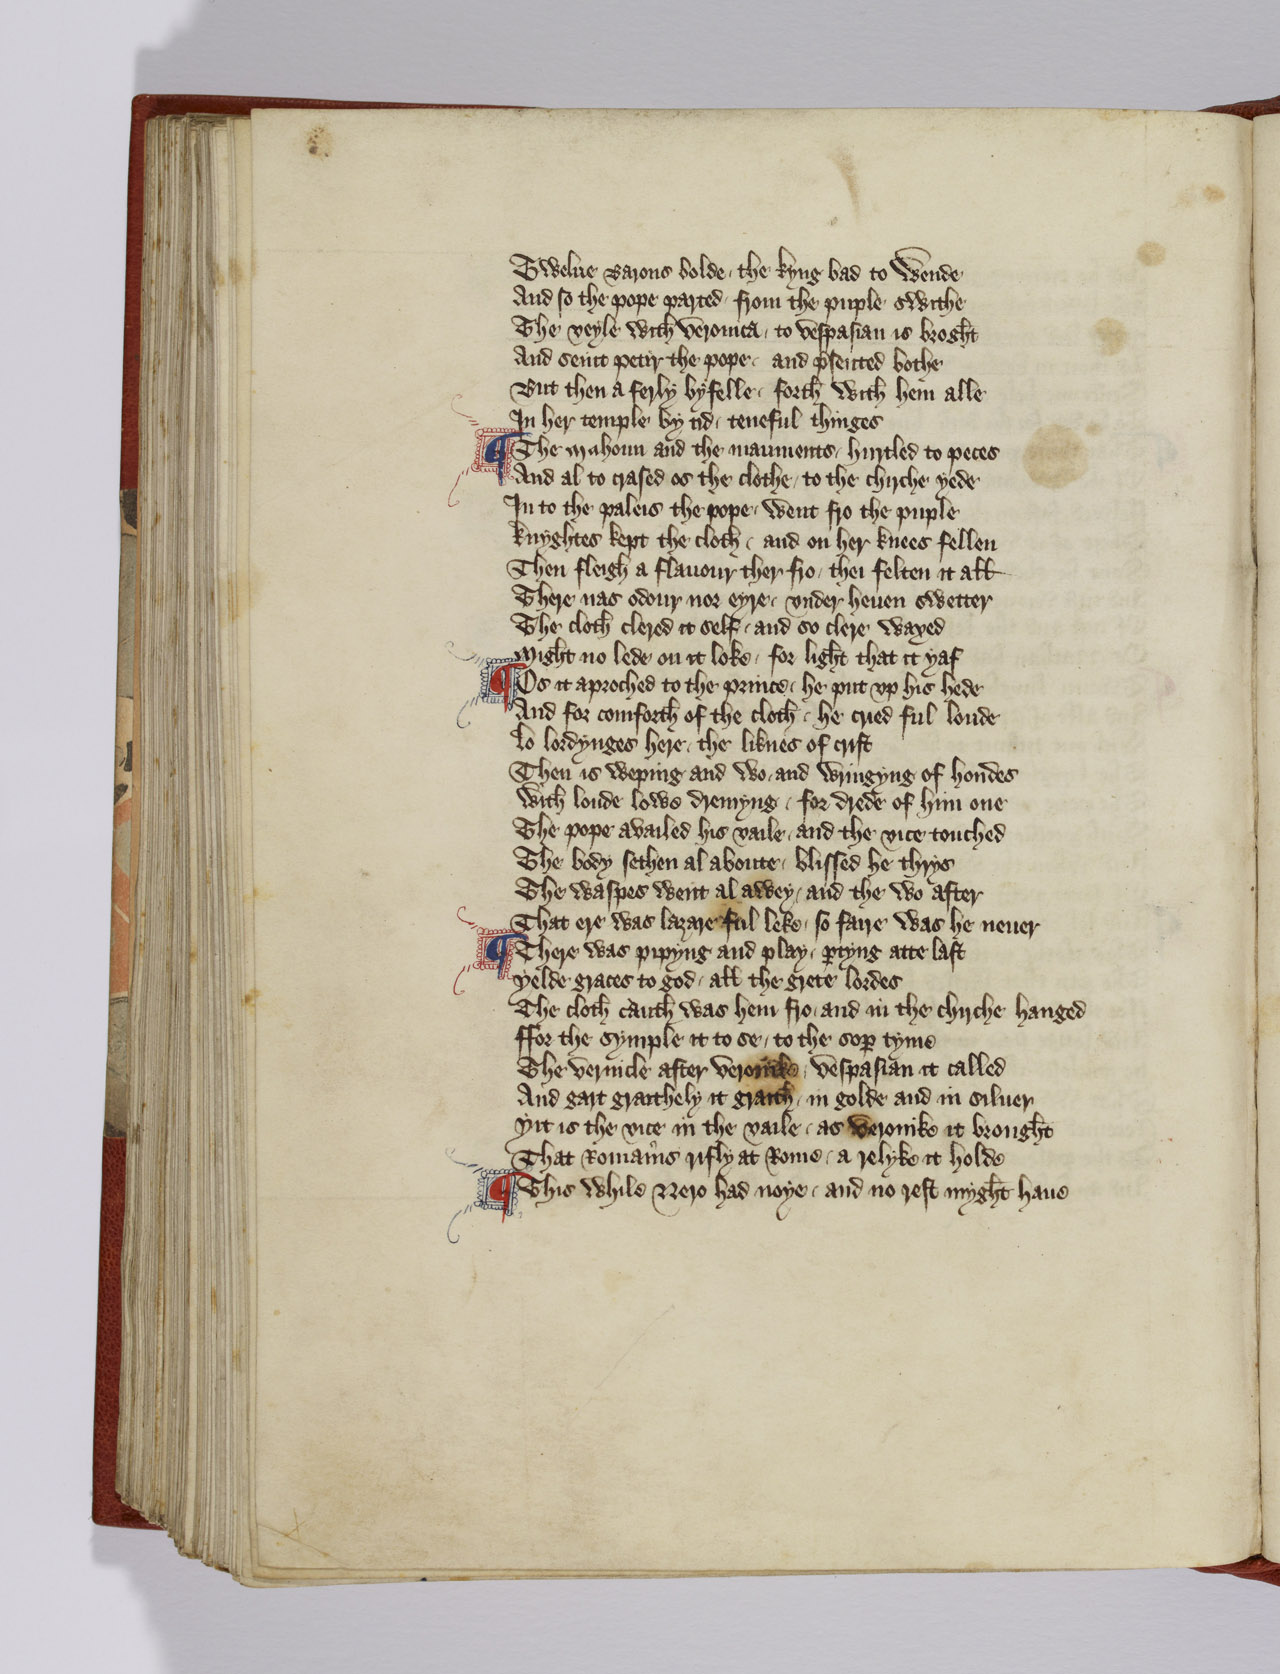 Twelue Barons bolde · the kyng bad to wende
And so the pope parted · from the puple swithe
The veyle with veronica · to vespasian is broght
And seint petir the pope · and p̃sented bothe
But then a ferly byfelle · forth with hem alle
In her temple by tid · teneful thinges
¶ The mahoun and the maumentes · hurtled to peces
And al to crased os the clothe · to the chirche yede
In to the paleis the pope · went fro the puple
knyghtes kept the cloth · and on her knees fellen
Then fleigh a flauour ther fro · thei felten it all
There nas odour nor eyre · vnder heuen swetter
The cloth clered it self · and so clere waxed
Might no lede on it loke · for light that it yaf
¶ Os it aproched to the prince · he put vp his hede
And for comforth of the cloth · he cried ful loude
lo lordynges here · the liknes of crist
Then is weping and wo · and wringyng of hondes
with loude lowe dremyng · for drede of him one
The pope availed his vaile · and the vice touched
The body sethen al aboute · blissed he thrys
The waspes went al awey · and the wo after
That ere was lazare ful leke · so faire was he neuer
¶ There was pipyng and play · ꝑtyng atte last
yelde graces to god · all the grete lordes
The cloth cauth was hem fro · and in the chirche hanged
ffor the symple it to se · to the soꝑ tyme
The vernicle after veronike · vespasian it called
And gart graithely it graith · in golde and in siluer
yit is the vice in the vaile · as veronike it brought
That Romains rifly at Rome · a relyke it holde
¶ This while Nero had noye · and no rest myght haue